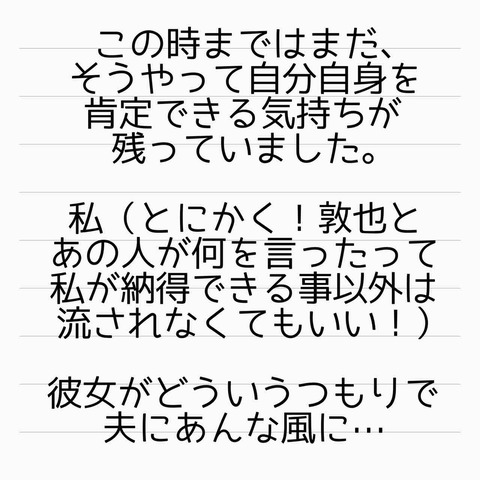 この時まではまだ、
そうやって自分自身を
肯定できる気持ちが
残っていました。
私（とにかく！敦也と
あの人が何を言ったって
私が納得できる事以外は
流されなくてもいい！）
彼女がどういうつもりで
夫にあんな風に…